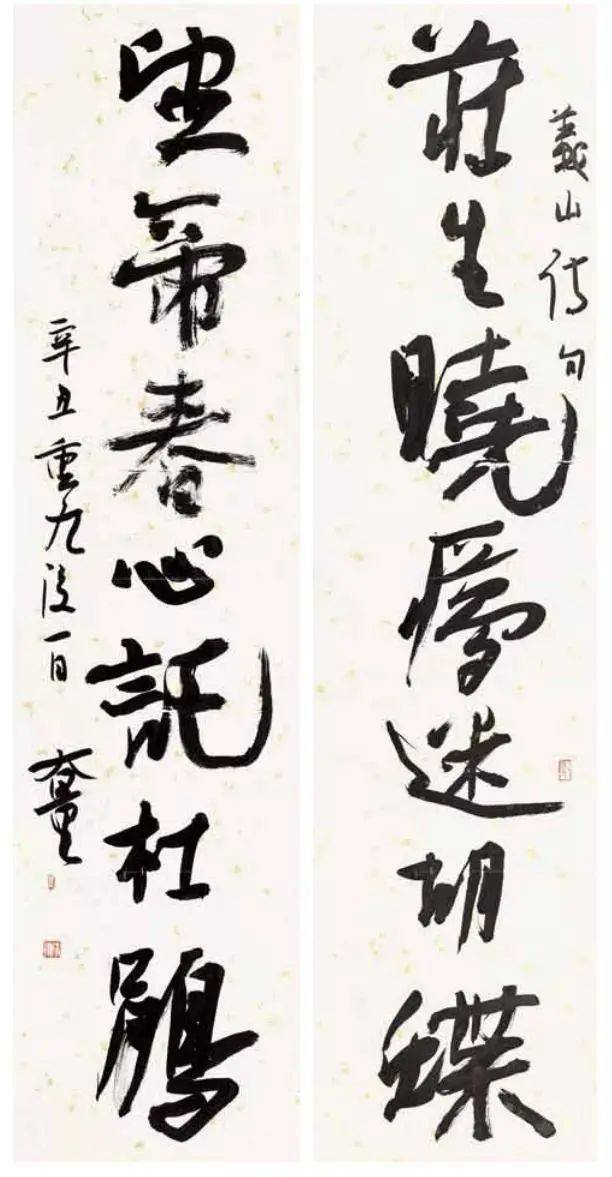 義山詩句
莊生曉夢迷胡蝶
望帝春心託杜鵑
辛丑重九後一日